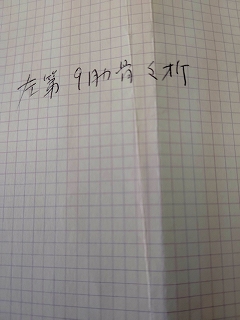 左第9肋骨々折